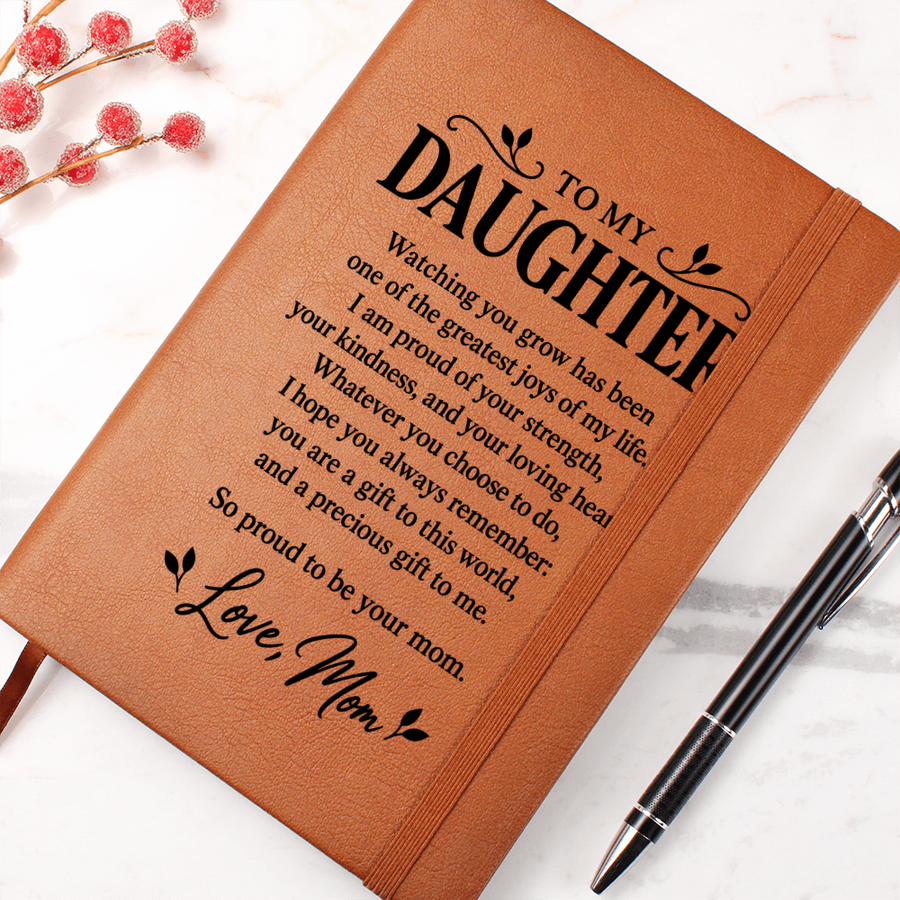 TO MY
DAUGHTER
Watching you grow has been
one of the greatest joys of my life.
I am proud of your strength,
your kindness, and your loving hear
Whatever you choose to do,
I hope you always remember:
you are a gift to this world,
and a precious gift to me.
So proud to be your mom.
Love, Mom